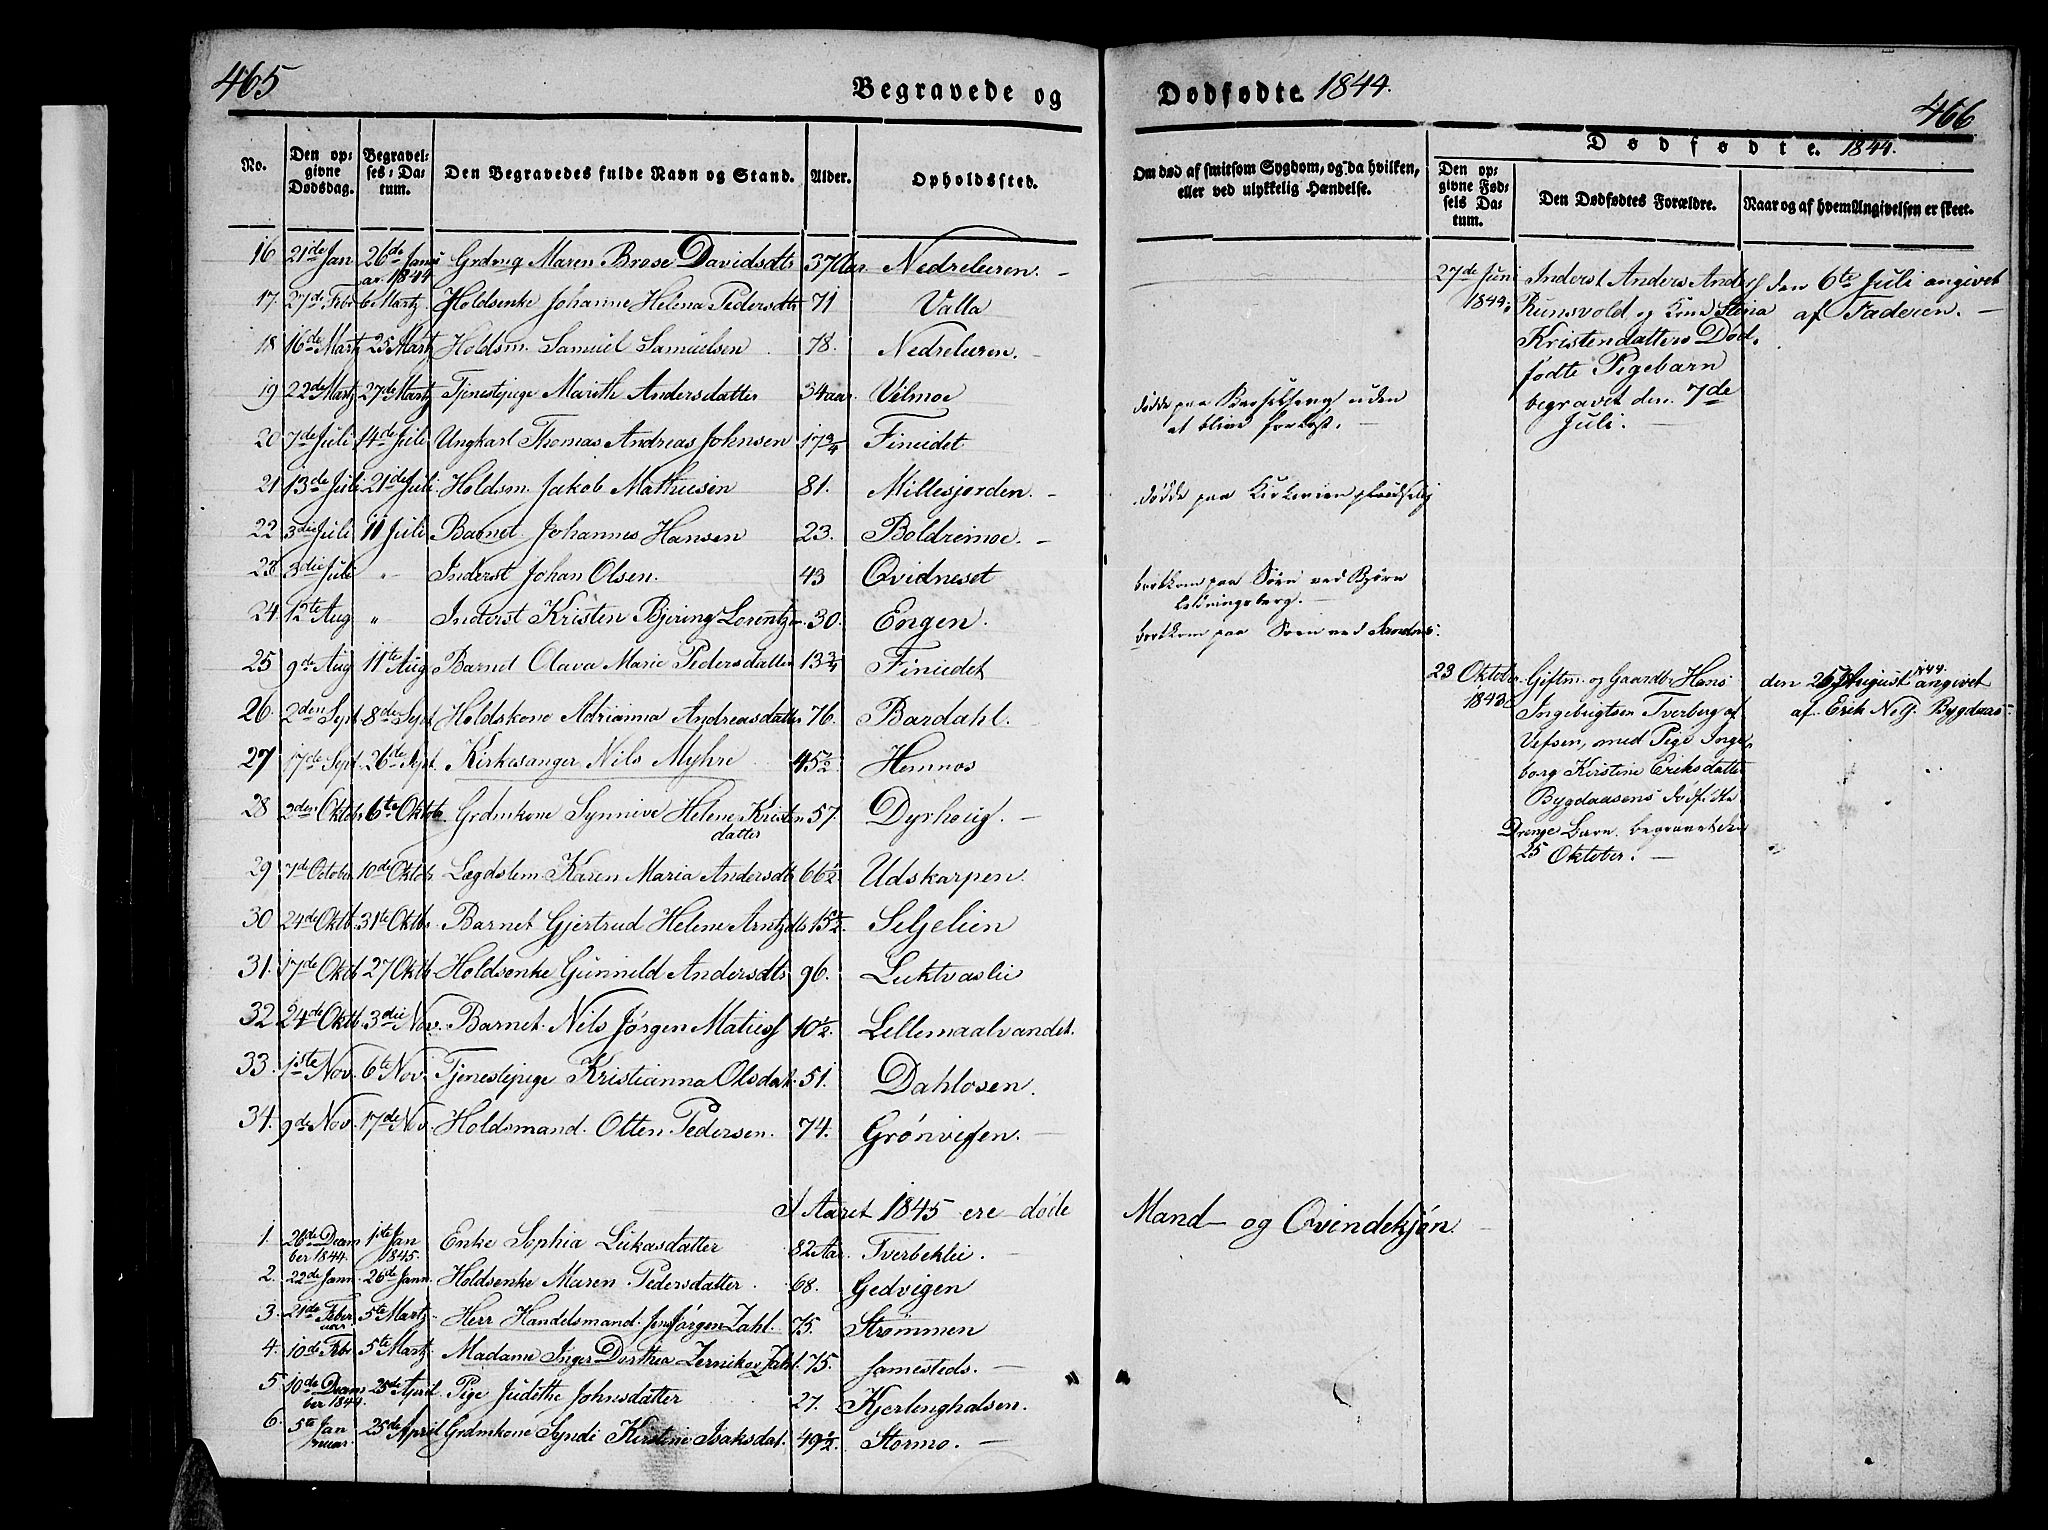 465
Begravede og
Dødfødte 1844.
466
No.
Den opgivne Dødsdag.
Begravelses-Datum.
Den Begravedes fulde Navn og Stand.
Alder.
Opholdssted.
Om død af smitsom Sygdom, og da hvilken,
eller ved ulykkelig Hændelse.
Dødfødte. 1844.
Den opgivne Fødsels Datum.
Den Dødfødtes Forældre.
Naar og af hvem Angivelsen er skeet.
16 21de Jan 26de Januar 1844 Grdmg Maren Brose Davidsdtr 37 Aar. Nedreleren. -
17. 27de Febr 6 Martz Holdsenke Johanne Helena Pedersdtr 71 Valla
18 16de Martz 25 Martz Holdsm. Samuel Samuelsen 78. Nedreleren. -
19 22de Martz 27de Martz Tjenestepige Marith Andersdatter 34 aar. Vilmoe
døde paa Barselseng uden
at blive forløst. -
20 7de Juli 14de Juli Ungkarl Thomas Andreas Johnsen 17 3/4 Finidet
21 13de Juli 21de Juli Holdsm. Jakob Mathisen 81. Millesjorden. -
døde paa Kirkeveien plødselig
22 3die Juli 11 Juli Barnet Johannes Hansen 23. Boldremoe. -
23 3die Juli " Inderst Johan Olsen. 43 Qvidneset
bortkom paa Søen ved Bjørn
24 12te Aug " Inderst Kristen Bjering Lorentz 30. Engen.
bortkom paa Søen ved Sandnes.
25 9de Aug 11te Aug Barnet Olava Marie Pedersdatter 13 3/4 Finidet
26. 2den Sept 8de Sept Holdskone Adrianna Andreasdatter 76. Bardahl.
27 17de Sept. 26de Sept. Kirkesanger Nils Myhre 45 1/2 Hemnes
28 2den Oktob. 6te Oktob. Grdmkone Synnive Helene Kristen
datter 57. Dyrhoug. -
29 7de October 10de Oktob. Lægdslem Karen Maria Andersdtr 66 1/2 Udskarpen.
30 24de Oktb. 31te Oktb. Barnet Gjertrud Helene Arntzdtr 15 1/2. Seljelien
31. 17de Oktb 27 Oktb Holdsenke Gunnild Andersdtr 96. Luktvaslie
32 24de Oktb 3die Nov. Barnet Nils Jørgen Maties 10 1/2. Lellemaalvandet.
33. 1ste Nov. 6te Nov. Tjenestepige Kristianna Olsdat. 51. Dahlosen.
34. 9de Nov. 17de Nov. Holdsmand Otten Pedersen. 74. Grønvigen. -
27de Juni 1844. Inderst Anders Anders
Runsvold og Kone Stina
Kristendatters Død-
fødte Pigebarn
begravet den 7de
Juli. -
den 6te Juli angivet
af Faderen. -
23 Oktober 1843. Giftm. og Gaardbr Hans
Ingebrigtsen Tverberg af
Vefsen, med Pige Inge-
borg Kirstine Eriksdatter
Bygdaasens dødfødte
Drenge Barn begravet den
25 Oktober. -
den 26 August 1844 angivet
af Erik Bygdaas-
I Aaret 1845 ere døde
Mand- og Qvindekjøn.
1. 26de December 1844. 1ste Jan 1845. Enke Sophia Lukasdatter 82 Aar. Tverbeklei. -
2. 22de Jann. 26de Jann. Holdsenke Maren Pedersdatter. 68. Gedvigen
3. 21de Februar. 5te Martz Herr Handelsmand Jens Jørgen Zahl. 75. Strømmen
4. 10de Febr 5te Martz Madame Inger Dorthea Zernikov Zahl. 75. samesteds. -
5 10de December 1844. 25de April. Pige Judithe Johnsdatter 27. Kjerlenghalsen.
6. 5te Januar 25de April Grdmkone Syndi Kirstine Isaksdat. 49 1/2 Stormo. -